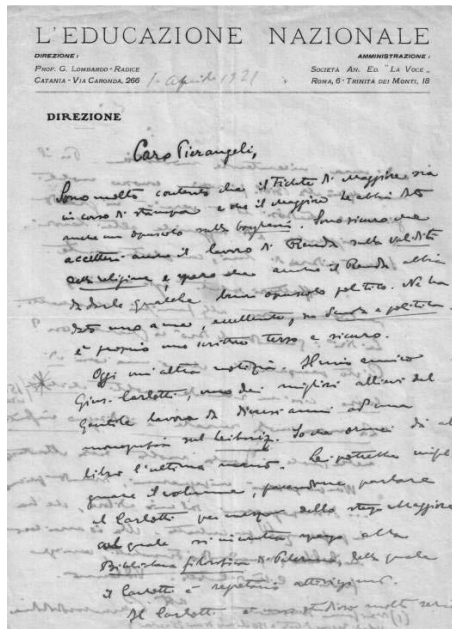 L'EDUCAZIONE NAZIONALE
DIREZIONE :
PROF. G. LOMBARDO-RADICE
CATANIA - VIA CARONDA, 266
1. aprile 1921
AMMINISTRAZIONE :
SOCIETÀ AN. ED. "LA VOCE"
ROMA, 6 - TRINITÀ DEI MONTI, 18
DIREZIONE
Caro Pierangeli,
Sono molto contento che il Fichte di Maggiore sia
in corso di stampa e che il Maggiore le abbia dato
anche un opuscolo sulla . Sono sicuro che
accetterà anche il lavoro di Renda sulla validità
della religione e spero che anche il Renda abbia
da darle qualche buon opuscolo politico. Ne ha
dato uno a me, eccellente, su Scuola e politica.
È proprio uno scrittore terso e sicuro.
Oggi un'altra notizia. Il mio amico
Gius. Carlotti, uno dei migliori allievi del
Gentile lavora da diversi anni ad una
monografia sul Leibniz. Sta ora dando al
libro l'ultima mano. Lei potrebbe
il volume, facendone parlare
al Carlotti per mezzo dello stesso Maggiore
col quale si incontra spesso alla
Biblioteca filosofica di Palermo, della quale
il Carlotti è segretario
Il Carlotti è molto serio